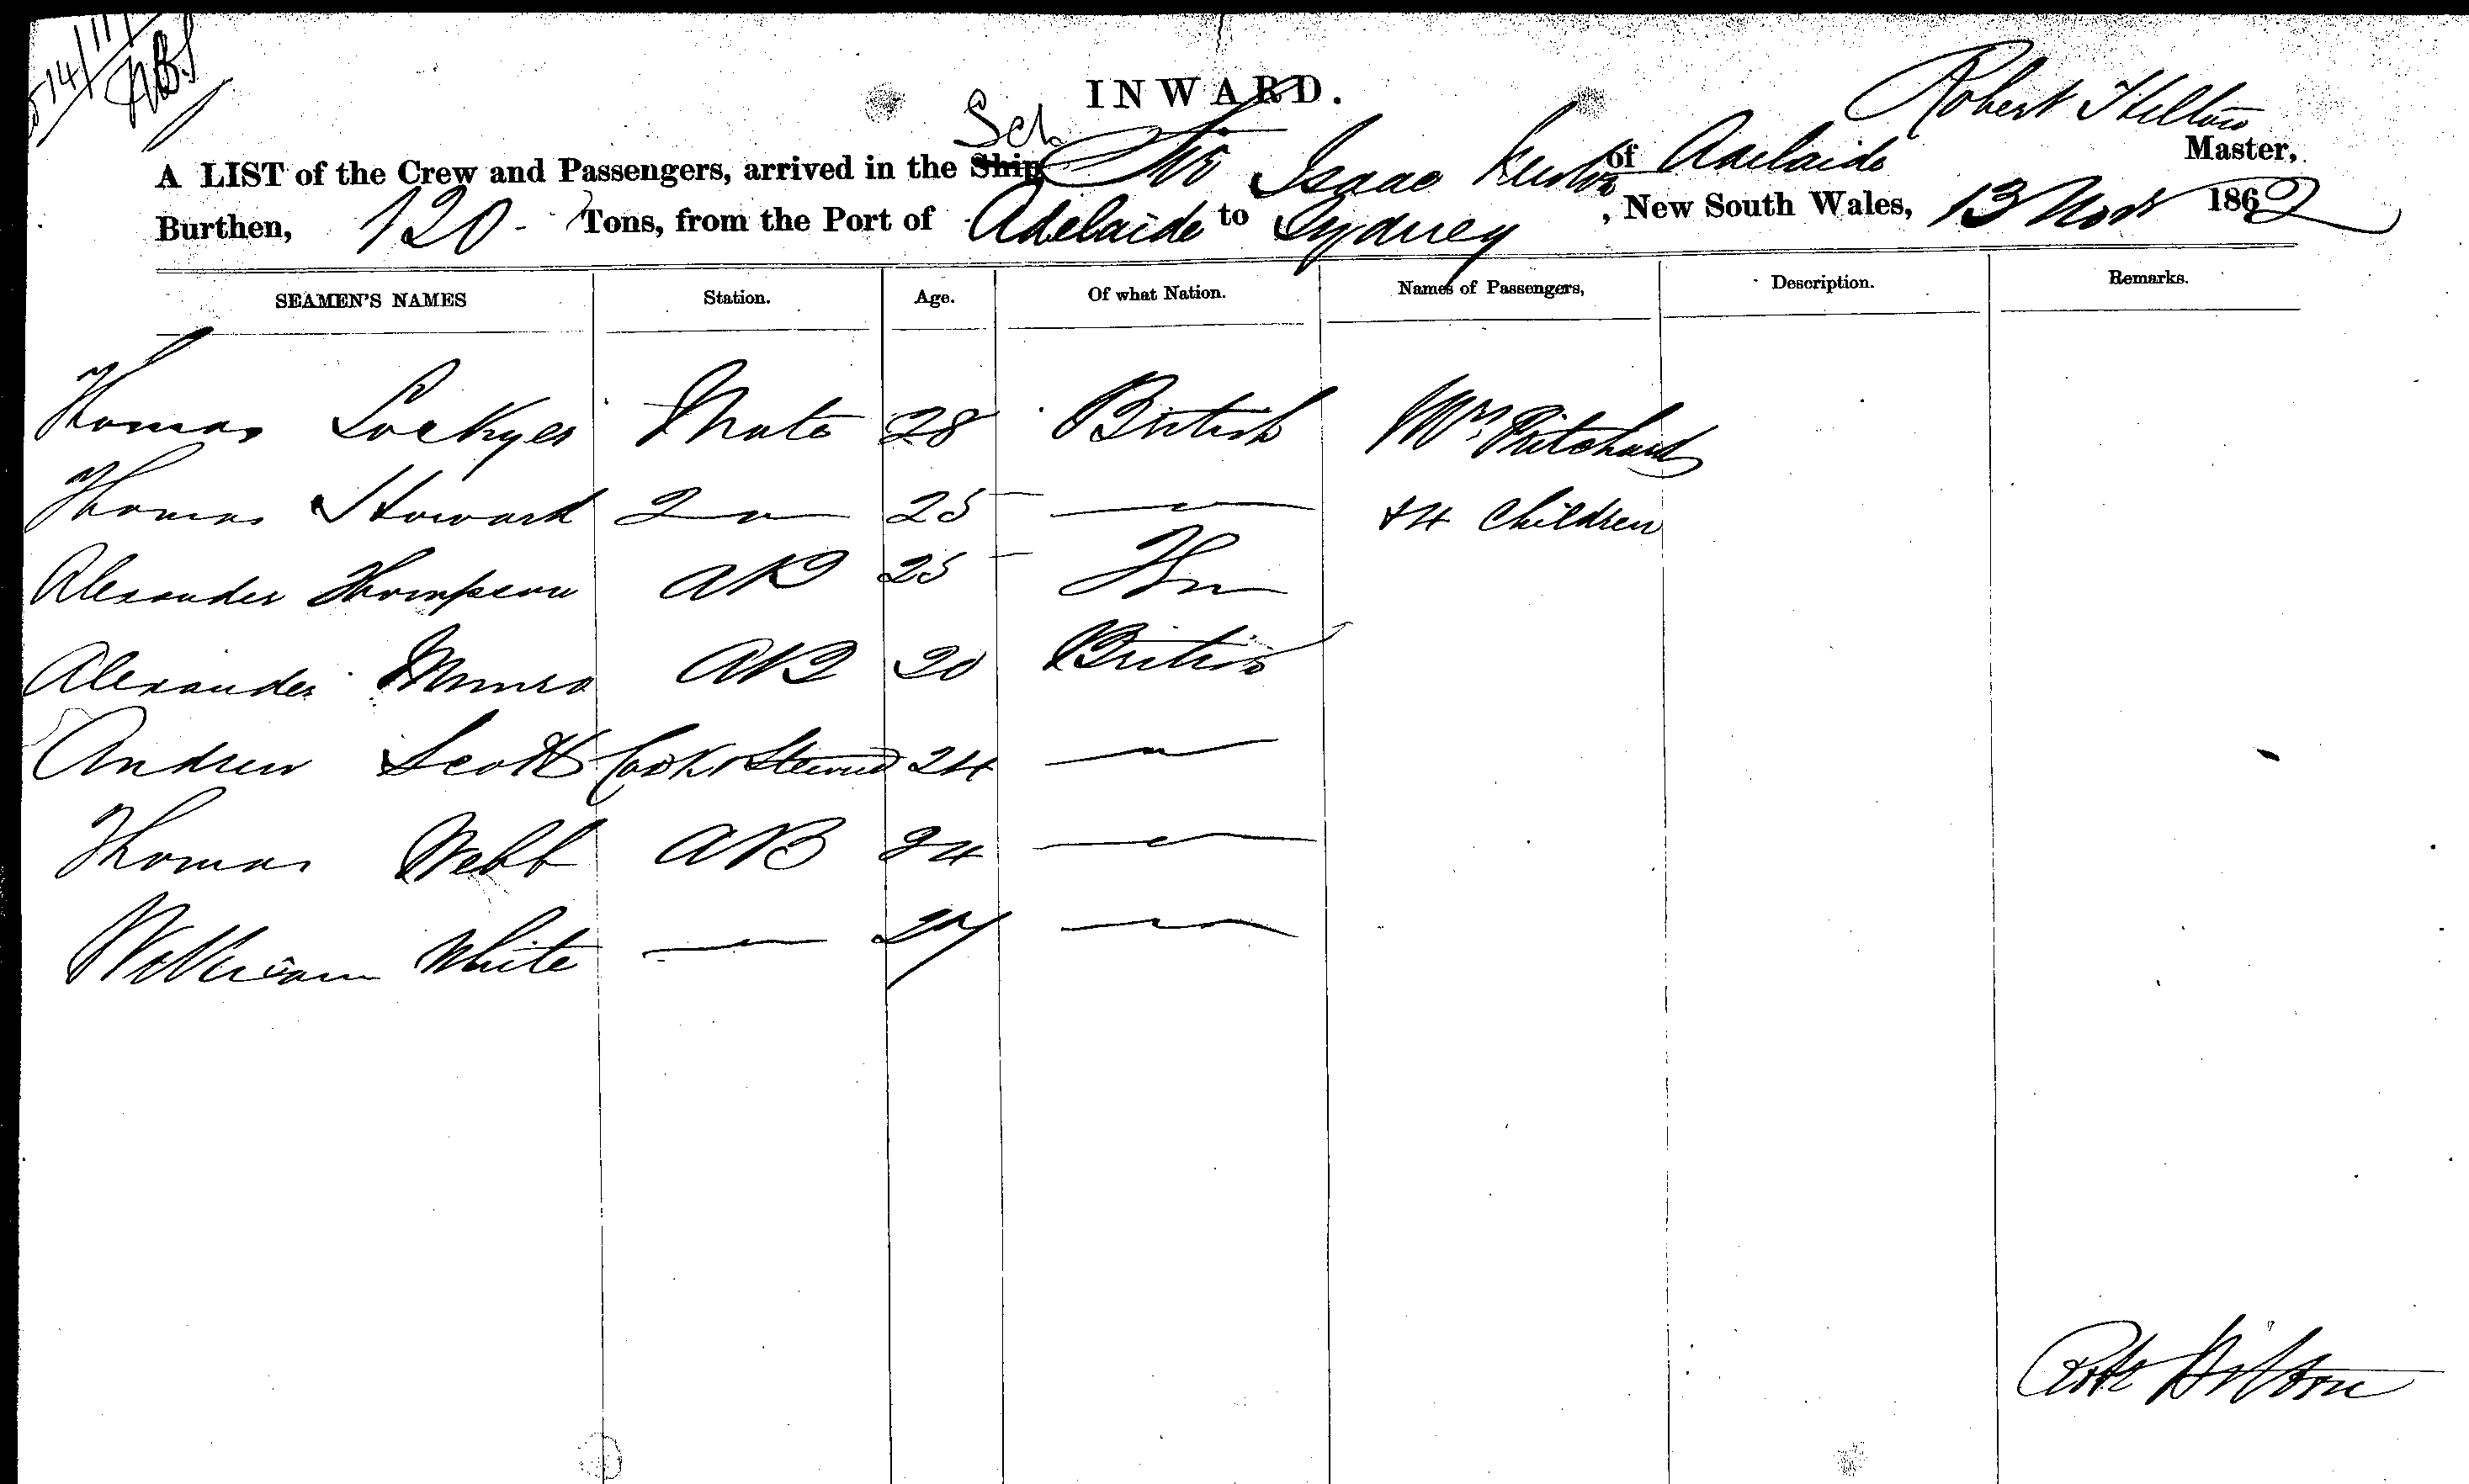 14/11
INWARD.
Sch
Robert Hilton
A LIST of the Crew and Passengers, arrived in the Ship Isaac of Adelaide Master,
Burthen, 120 Tons, from the Port of Adelaide to Sydney, New South Wales, 13 Novr 1862
SEAMEN'S NAMES Station. Age. Of what Nation. Names of Passengers, Description. Remarks.
Thomas Lockyer Mate 28 British Mrs Pritchard
Thomas Howard 2 — 25 — & 4 Children
Alexander Thompson AB 25
Alexander Munro AB 20 British
Andrew Scott Cook & Steward 24 —
Thomas Webb AB 24 —
William White — 27 —
Robt Hilton